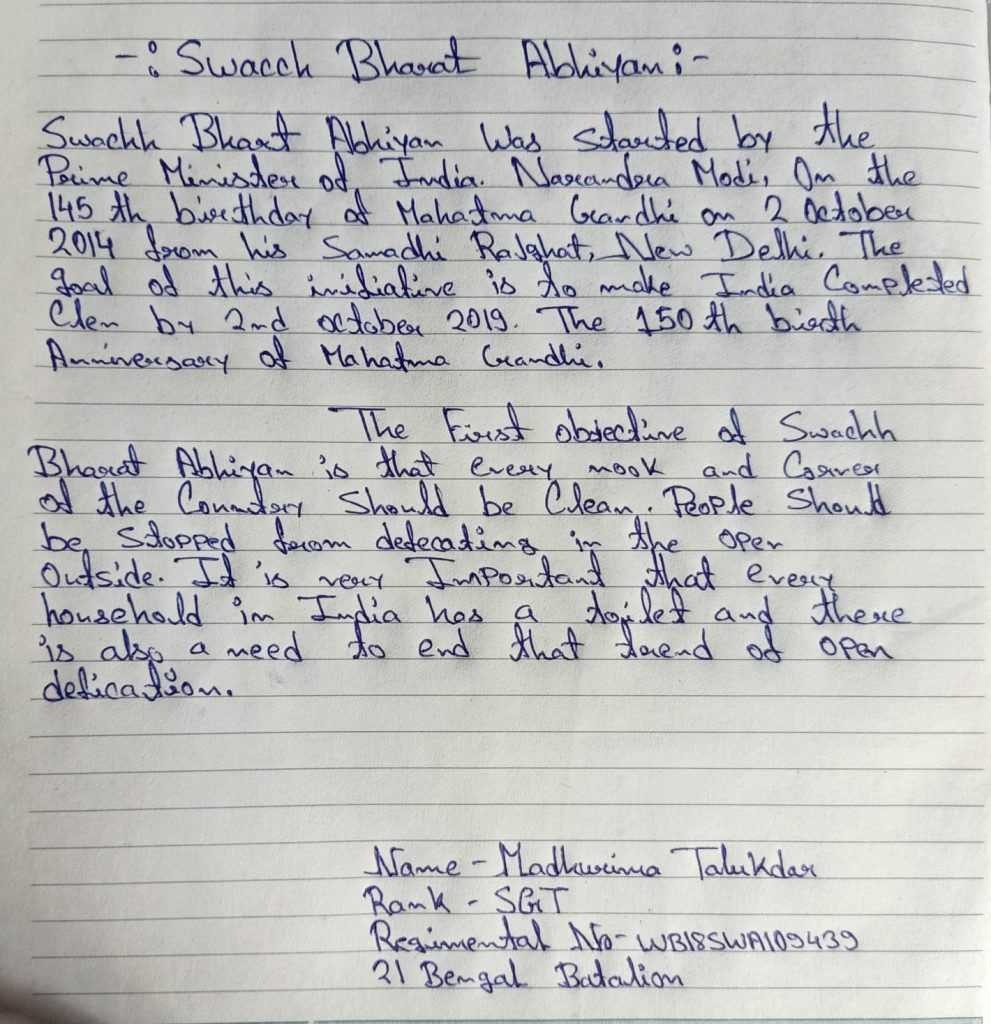 -: Swacch Bharat Abhiyan :-
Swachh Bharat Abhiyan Was started by the
Prime Minister of India. Narandra Modi, On the
145 th birthday of Mahatma Gandhi on 2 October
2014 from his Samadhi Rajghat, New Delhi. The
goal of this initiative is to make India Completed
Clen by 2nd october 2019. The 150 th birth
Anniversary of Mahatma Gandhi.
The First objective of Swachh
Bharat Abhiyan is that every nook and Corner
of the Country Should be Clean. People Should
be Stopped from defecating in the open
Outside. It is very Important that every
household in India has a toilet and there
is also a need to end that trend of open
defication.
Name - Madhurima Talukdar
Rank - SGT
Regimental No- WB18SWA109439
21 Bengal Batalion